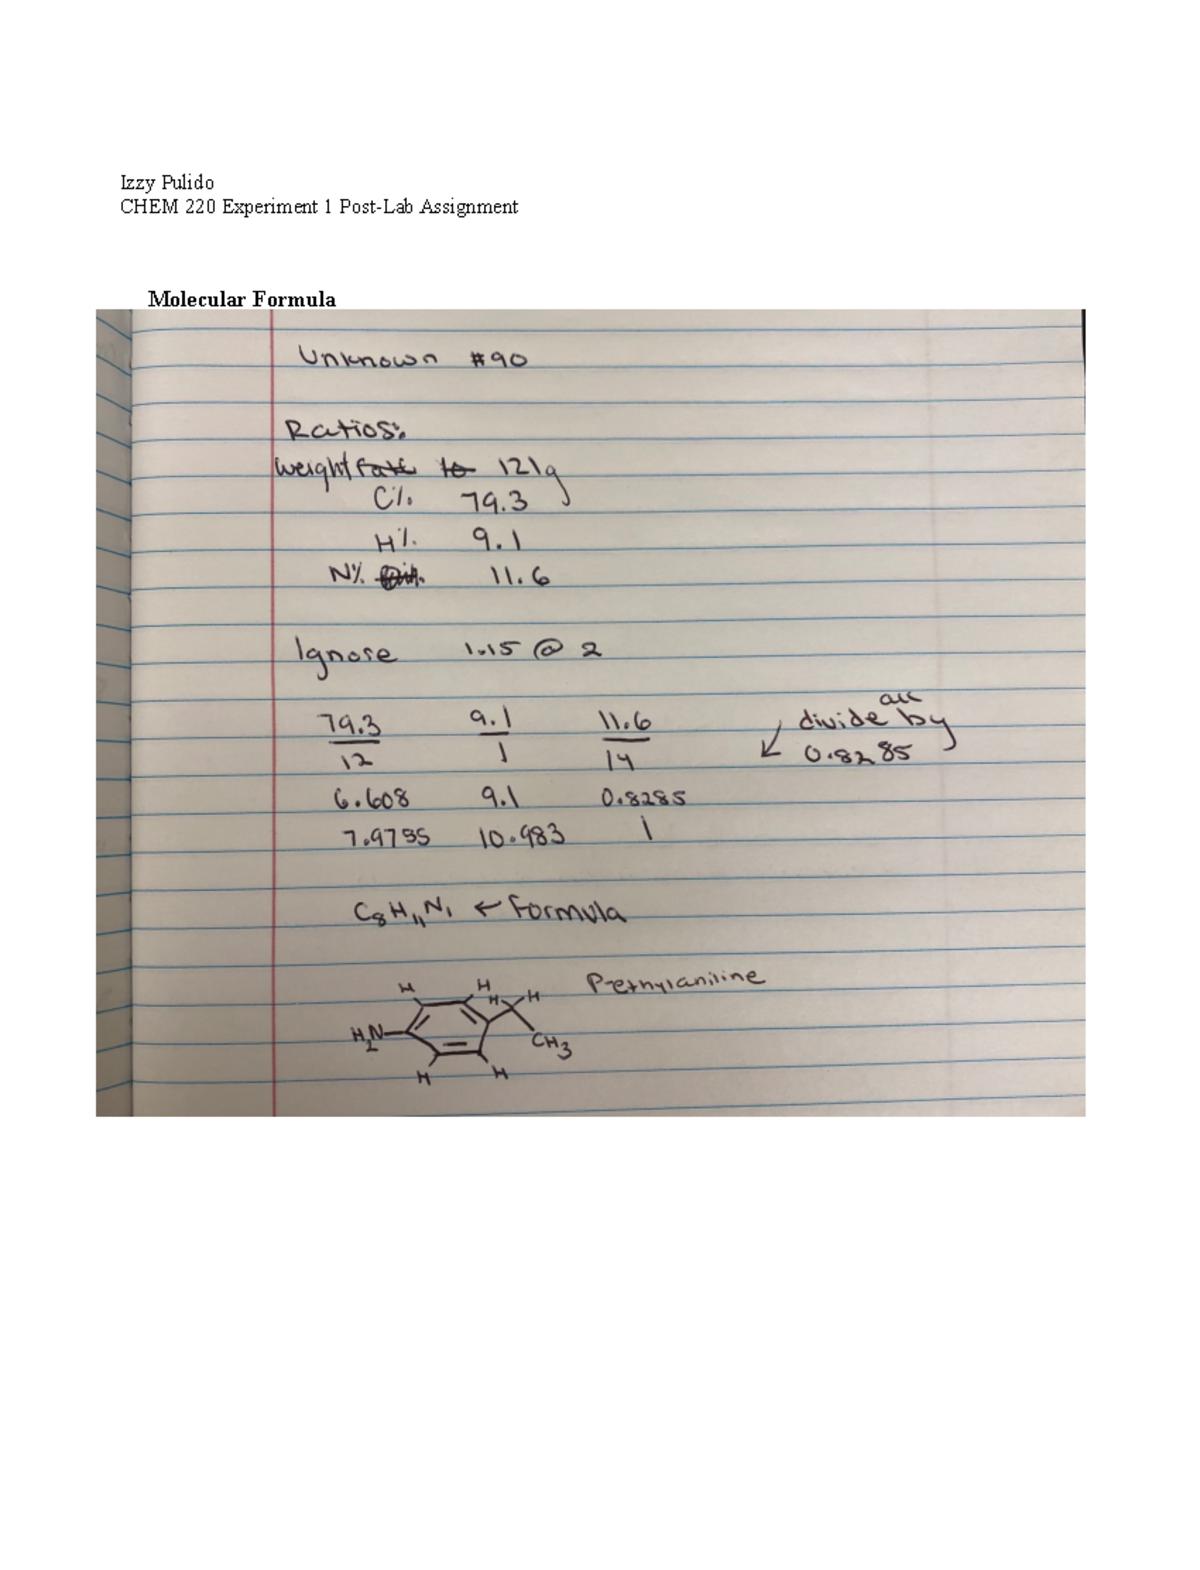 Izzy Pulido
CHEM 220 Experiment 1 Post-Lab Assignment
Molecular Formula
Unknown #90
Ratios:
weight 121g
C% 79.3
H% 9.1
N% 11.6
Ignore 1.15 @ 2
79.3 9.1 11.6 all divide by
12 1 14 0.8285
6.608 9.1 0.8285
7.9755 10.983 1
C8H11N1 ← Formula
P-ethylaniline
H H H H
H2N CH3
H H